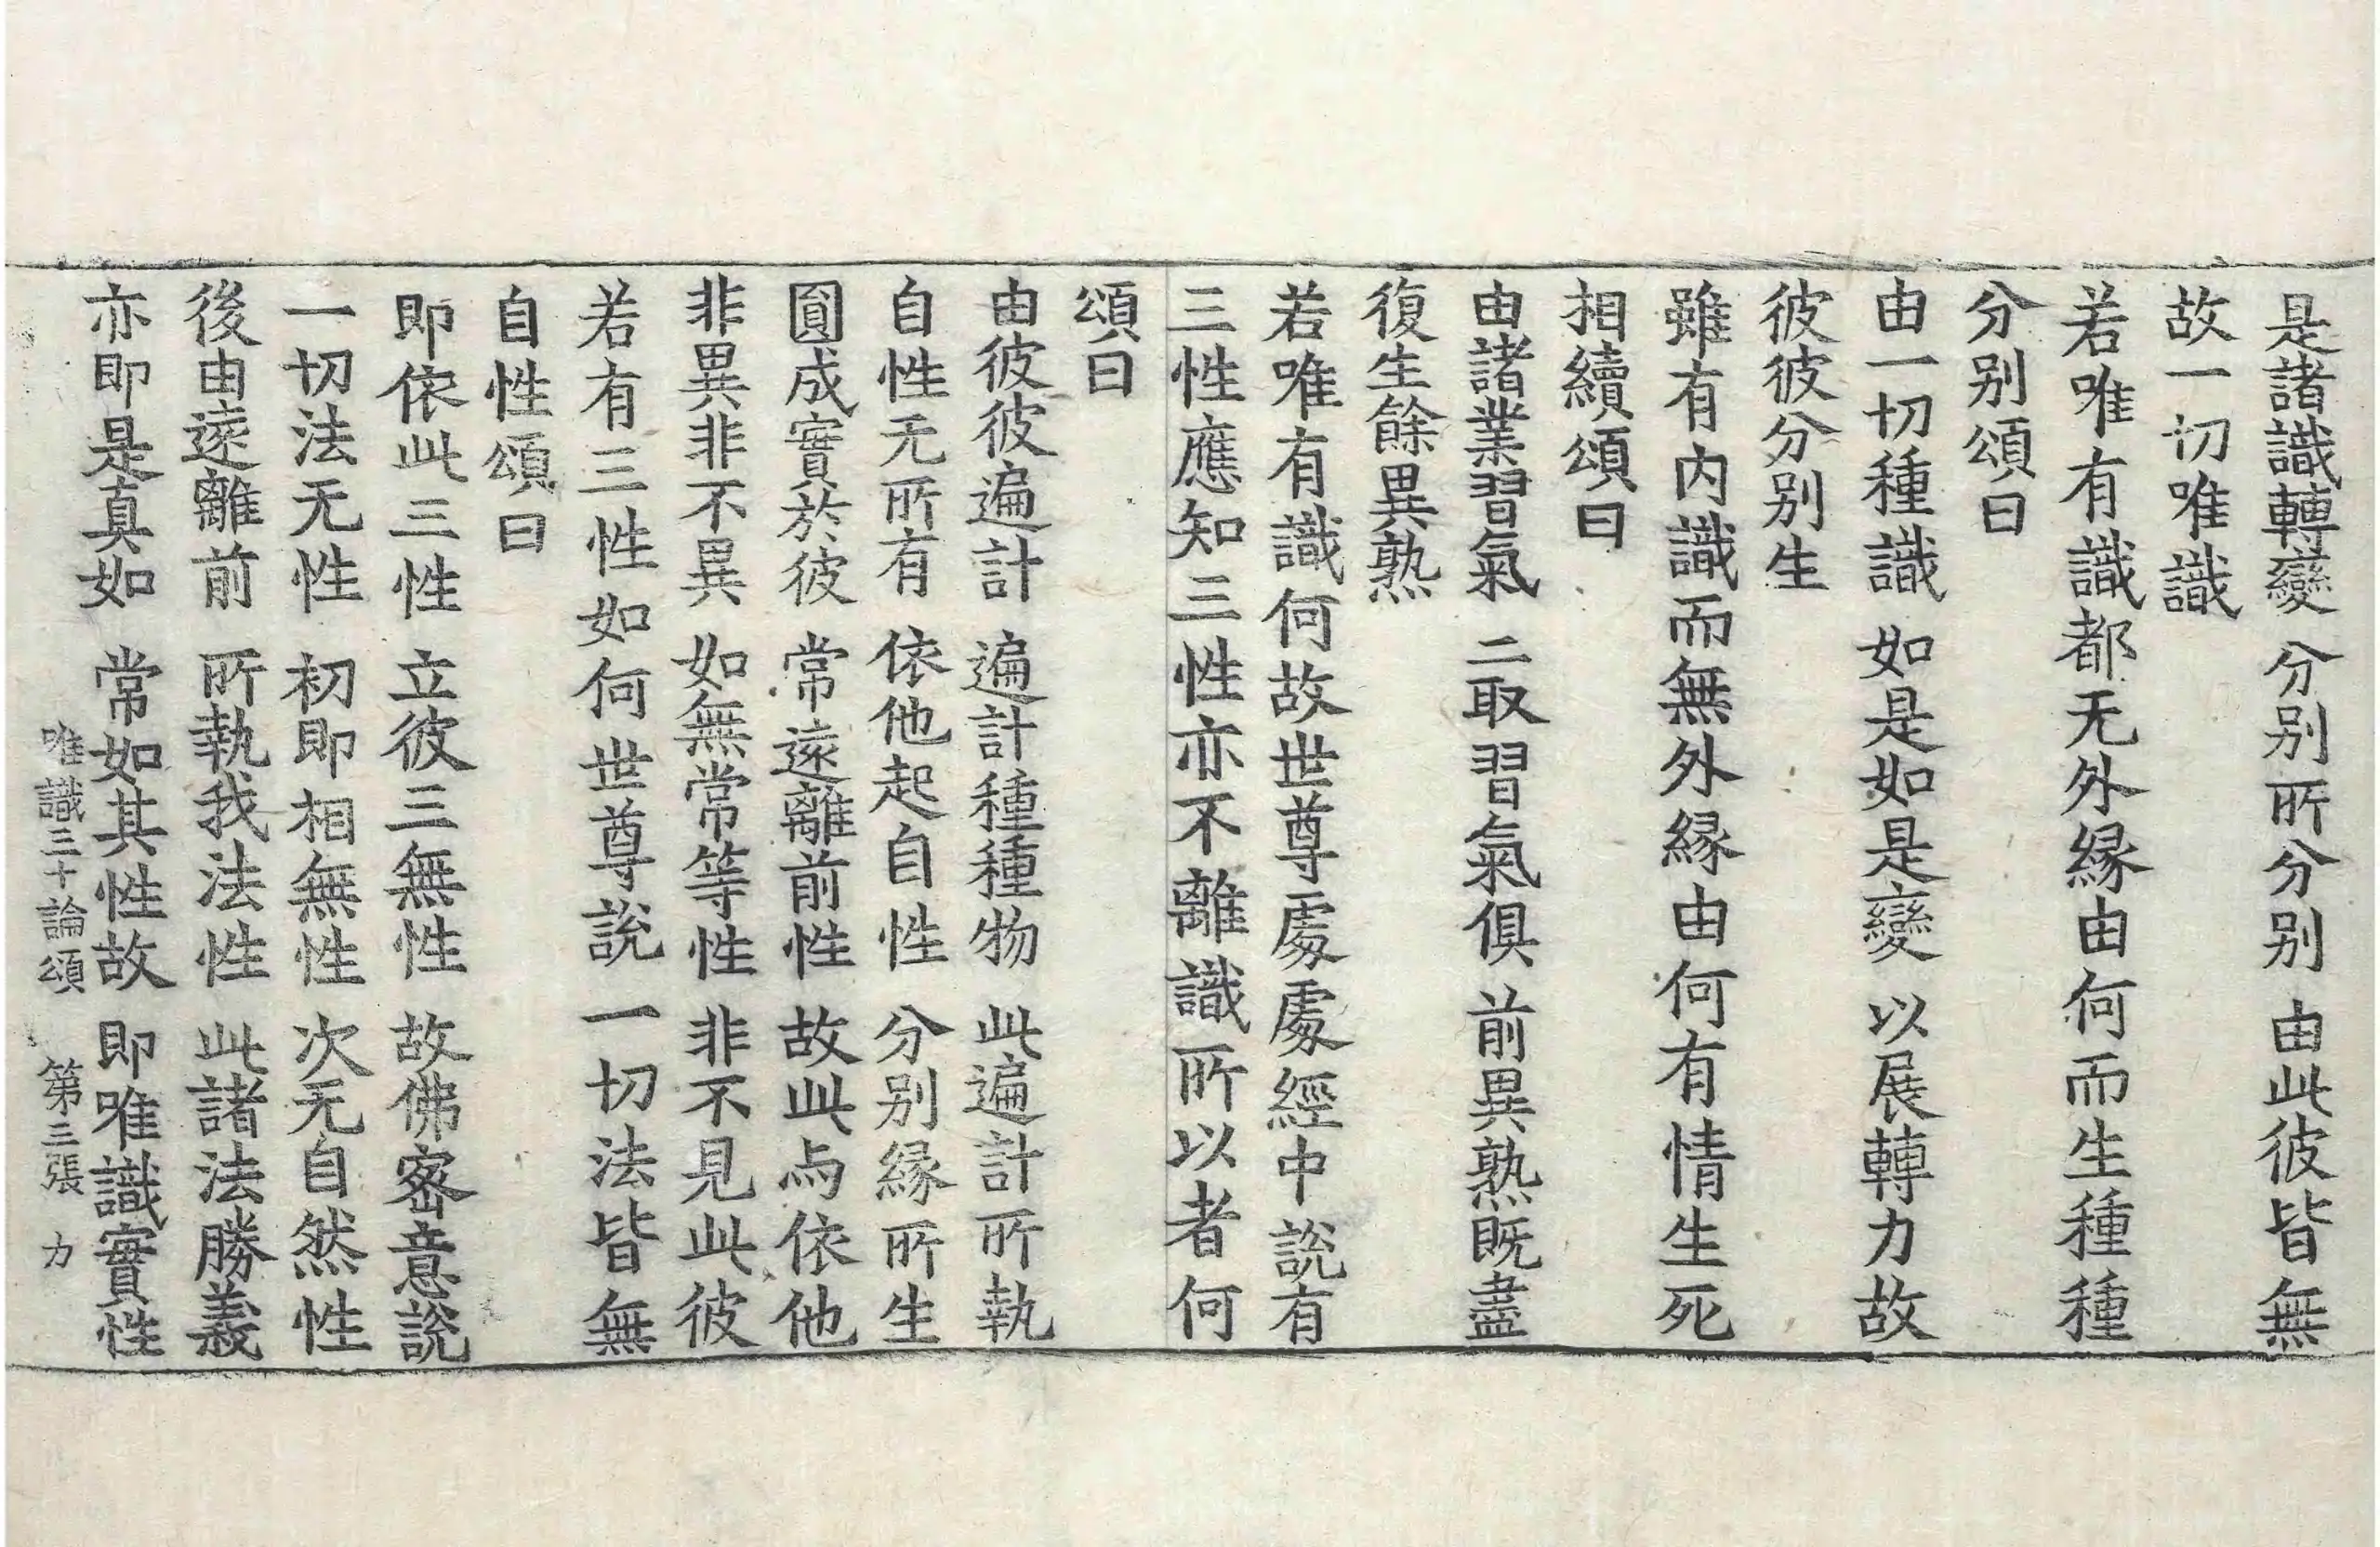 是諸識轉變 分別所分別 由此彼皆無
故一切唯識
若唯有識都无外緣由何而生種種
分別頌曰
由一切種識 如是如是變 以展轉力故
彼彼分別生
雖有内識而無外緣由何有情生死
相續頌曰
由諸業習氣 二取習氣俱 前異熟既盡
復生餘異熟
若唯有識何故世尊處處經中說有
三性應知三性亦不離識所以者何
頌曰
由彼彼遍計 遍計種種物 此遍計所執
自性无所有 依他起自性 分別緣所生
圓成實於彼 常遠離前性 故此与依他
非異非不異 如無常等性 非不見此彼
若有三性如何世尊說一切法皆無
自性頌曰
即依此三性 立彼三無性 故佛密意說
一切法无性 初即相無性 次无自然性
後由遠離前 所執我法性 此諸法勝義
亦即是真如 常如其性故 即唯識實性
唯識三十論頌 第三張 力